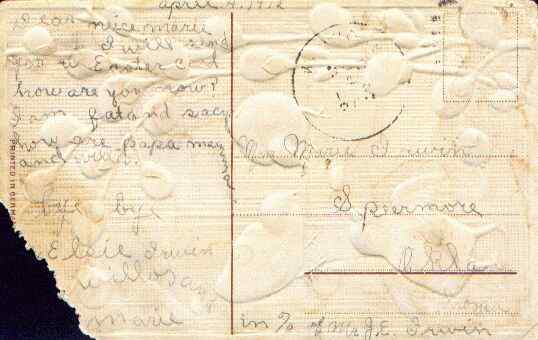 april 4, 1912
Dear neice marie
I will send
you a Easter Card
how are you now?
I am fat and sacy
how are papa
and
bye bye
Elsie Irwin
marie
PRINTED IN GERM
Marie Irwin
Speermore
Okla
in % of Mr J.E. Erwin